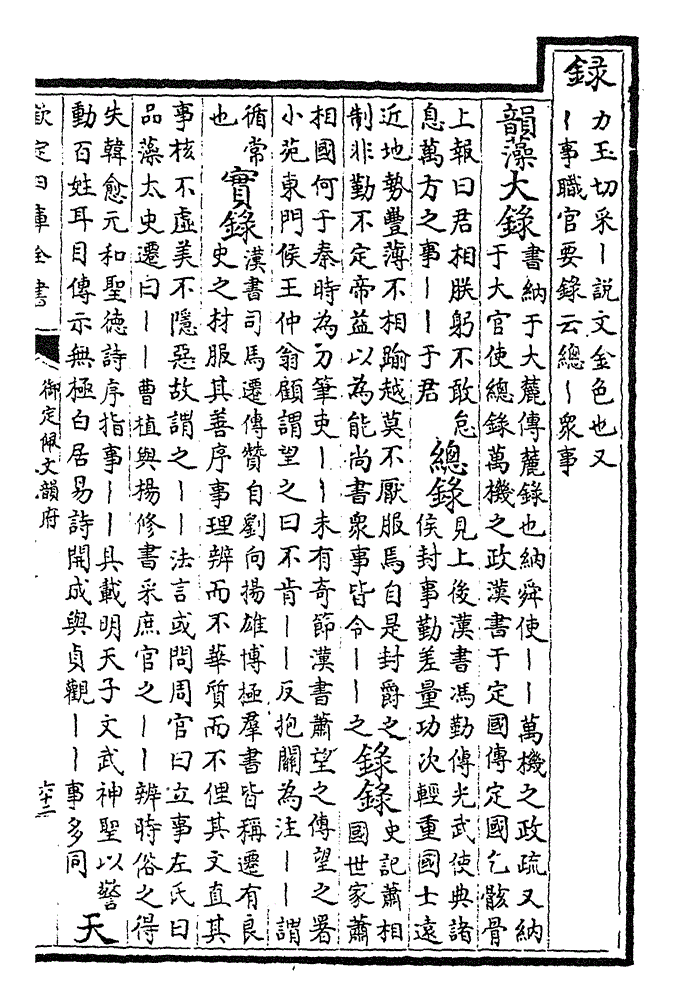 録
力玉切采丨說文金色也又
丨事職官要錄云總丨衆事
韻藻大錄
書納于大麓傳麓錄也納舜使丨丨萬機之政疏又納
于大官使總錄萬機之政漢書于定國傳定國乞骸骨
上報曰君相朕躬不敢怠
息萬方之事丨丨于君
總錄
見上後漢書馮勤傳光武使典諸
侯封事勤差量功次輕重國士遠
近地勢豐薄不相踰越莫不厭服焉自是封爵之
制非勤不定帝益以為能尚書衆事皆令丨丨之
錄錄
史記蕭相
國世家蕭
相國何于秦時為刀筆吏丨丨未有奇節漢書蕭望之傳望之署
小苑東門候王仲翁顧謂望之曰不肯丨丨反抱關為注丨丨謂
循常
也
實錄
漢書司馬遷傳贊自劉向揚雄博極羣書皆稱遷有良
史之材服其善序事理辨而不華質而不俚其文直其
事核不虛美不隱惡故謂之丨丨法言或問周官曰立事左氏曰
品藻太史遷曰丨丨曹植與楊修書采庶官之丨丨辨時俗之得
失韓愈元和聖德詩序指事丨丨具載明天子文武神聖以警
動百姓耳目傳示無極白居易詩開成與貞觀丨丨事多同
天
欽定四庫全書
御定佩文韻府
六十二